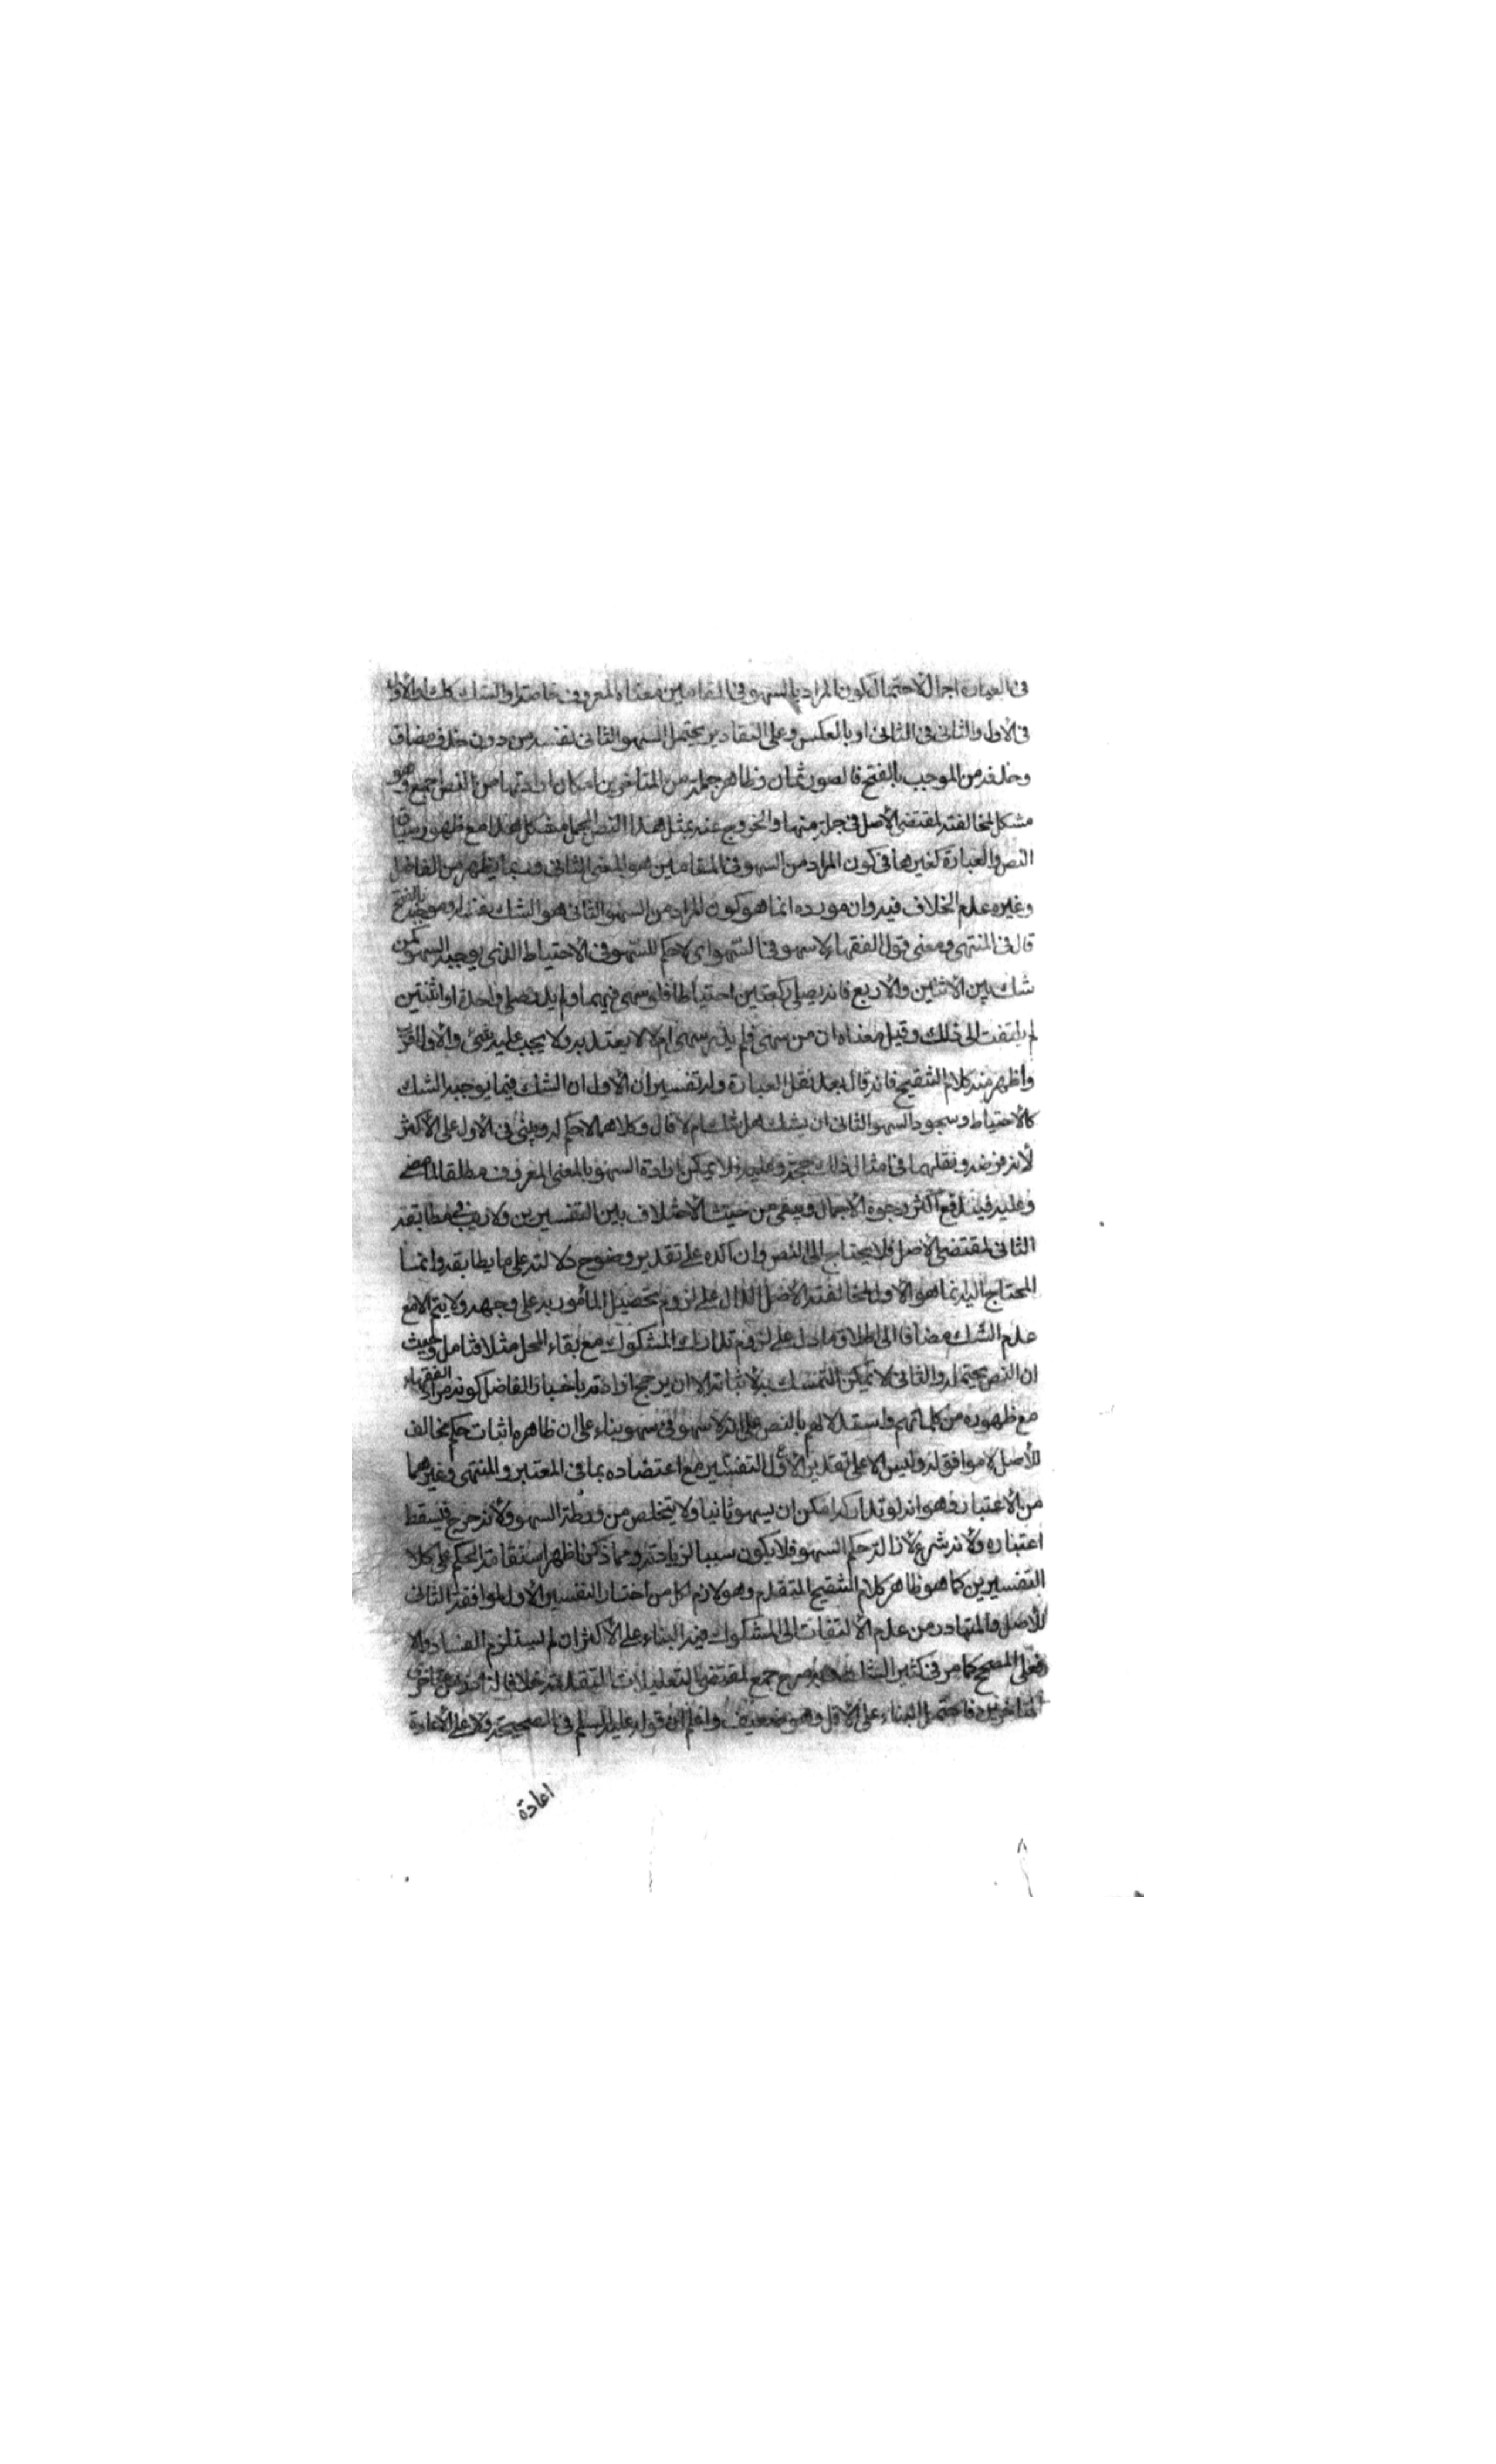 في العبارة اجمال لاحتمال كون المراد بالسهو في المقامين معناه المعروف خاصة او الشك كذلك او الاول
في الاول والثاني في الثاني او بالعكس وعلى التقادير يحتمل السهو الثاني نفسه من دون حذف مضاف
وحذفه من الموجب بالفتح فالصور ثمان وظاهر جملة من المتاخرين امكان ارادتها من النص اجمع وهو
مشكل لمخالفته لمقتضى الاصل في جملة منها والخروج عنه بمثل هذا النص المجمل مشكل هذا مع ظهور سياق
النص والعبارة كغيرها في كون المراد من السهو في المقامين هو المعنى الثاني وربما يظهر من الفاضل
وغيره عدم الخلاف فيه وان مورده انما هو كون المراد من السهو الثاني هو الشك نفسه او موجبه بالفتح
قال في المنتهى ومعنى قول الفقهاء لا سهو في السهو اي لا حكم للسهو في الاحتياط الذي يوجبه السهو كمن
شك بين الاثنين والاربع فانه يصلي ركعتين احتياطا فلو سهى فيهما ولم يدر صلى واحدة او اثنتين
لم يلتفت الى ذلك وقيل معناه ان من سهى فلم يدر سهى ام لا لا يعتد به ولا يجب عليه شئ والاول اقرب
واظهر منه كلام التنقيح فانه قال بعد نقل العبارة وله تفسيران الاول ان الشك فيما يوجبه الشك
كالاحتياط وسجود السهو الثاني ان يشك هل شك ام لا قال وكلاهما لا حكم له ويبني في الاول على الاكثر
لأنه فرضه ونقلهما في امثال ذلك حجة وعليه فلا يمكن ارادة السهو بالمعنى المعروف مطلقا لما مضى
وعليه فيندفع اكثر وجوه الاجمال ويبقى من حيث الاختلاف بين التفسيرين ولا ريب في مطابقة
الثاني لمقتضى الاصل فلا يحتاج الى النص وان اكده على تقدير وضوح دلالته على ما يطابقه وانما
المحتاج اليه انما هو الاول لمخالفته الاصل الدال على لزوم تحصيل المأمور به على وجهه ولا يتم الا مع
عدم الشك مضافا الى اطلاق ما دل على لزوم تدارك المشكوك مع بقاء المحل مثلا فتامل وحيث
ان النص يحتمله والثاني لا يمكن التمسك به لاثباته الا ان يرجح ارادته باخبار الفاضل كونه مراد الفقهاء
مع ظهوره من كلماتهم واستدلالهم بالنص على انه لا سهو في سهو بناء على ان ظاهره اثبات حكم مخالف
للأصل لا موافق له وليس الا على تقدير الأول التفسيرين مع اعتضاده بما في المعتبر والمنتهى وغيرهما
من الاعتبار وهو انه لو تداركه امكن ان يسهو ثانيا ولا يتخلص من ورطة السهو ولأنه حرج فيسقط
اعتباره ولأنه شرع لازالة حكم السهو فلا يكون سببا لزيادته ومما ذكرنا ظهر استقامة الحكم على كلا
التفسيرين كما هو ظاهر كلام التنقيح المتقدم وهو لازم لكل من اختار التفسير الاول لموافقة الثاني
للأصل والمتبادر من عدم الالتفات الى المشكوك فيه البناء على الاكثر ان لم يستلزم الفساد والا
فعلى المصحح كما مر في كثير الشك وبه صرح جمع لمقتضى التعليلات المتقدمة خلافا
المتاخرين فاحتمل البناء على الاقل وهو ضعيف واعلم ان قوله عليه السلم في الصحيحة ولا على الاعادة
اعادة